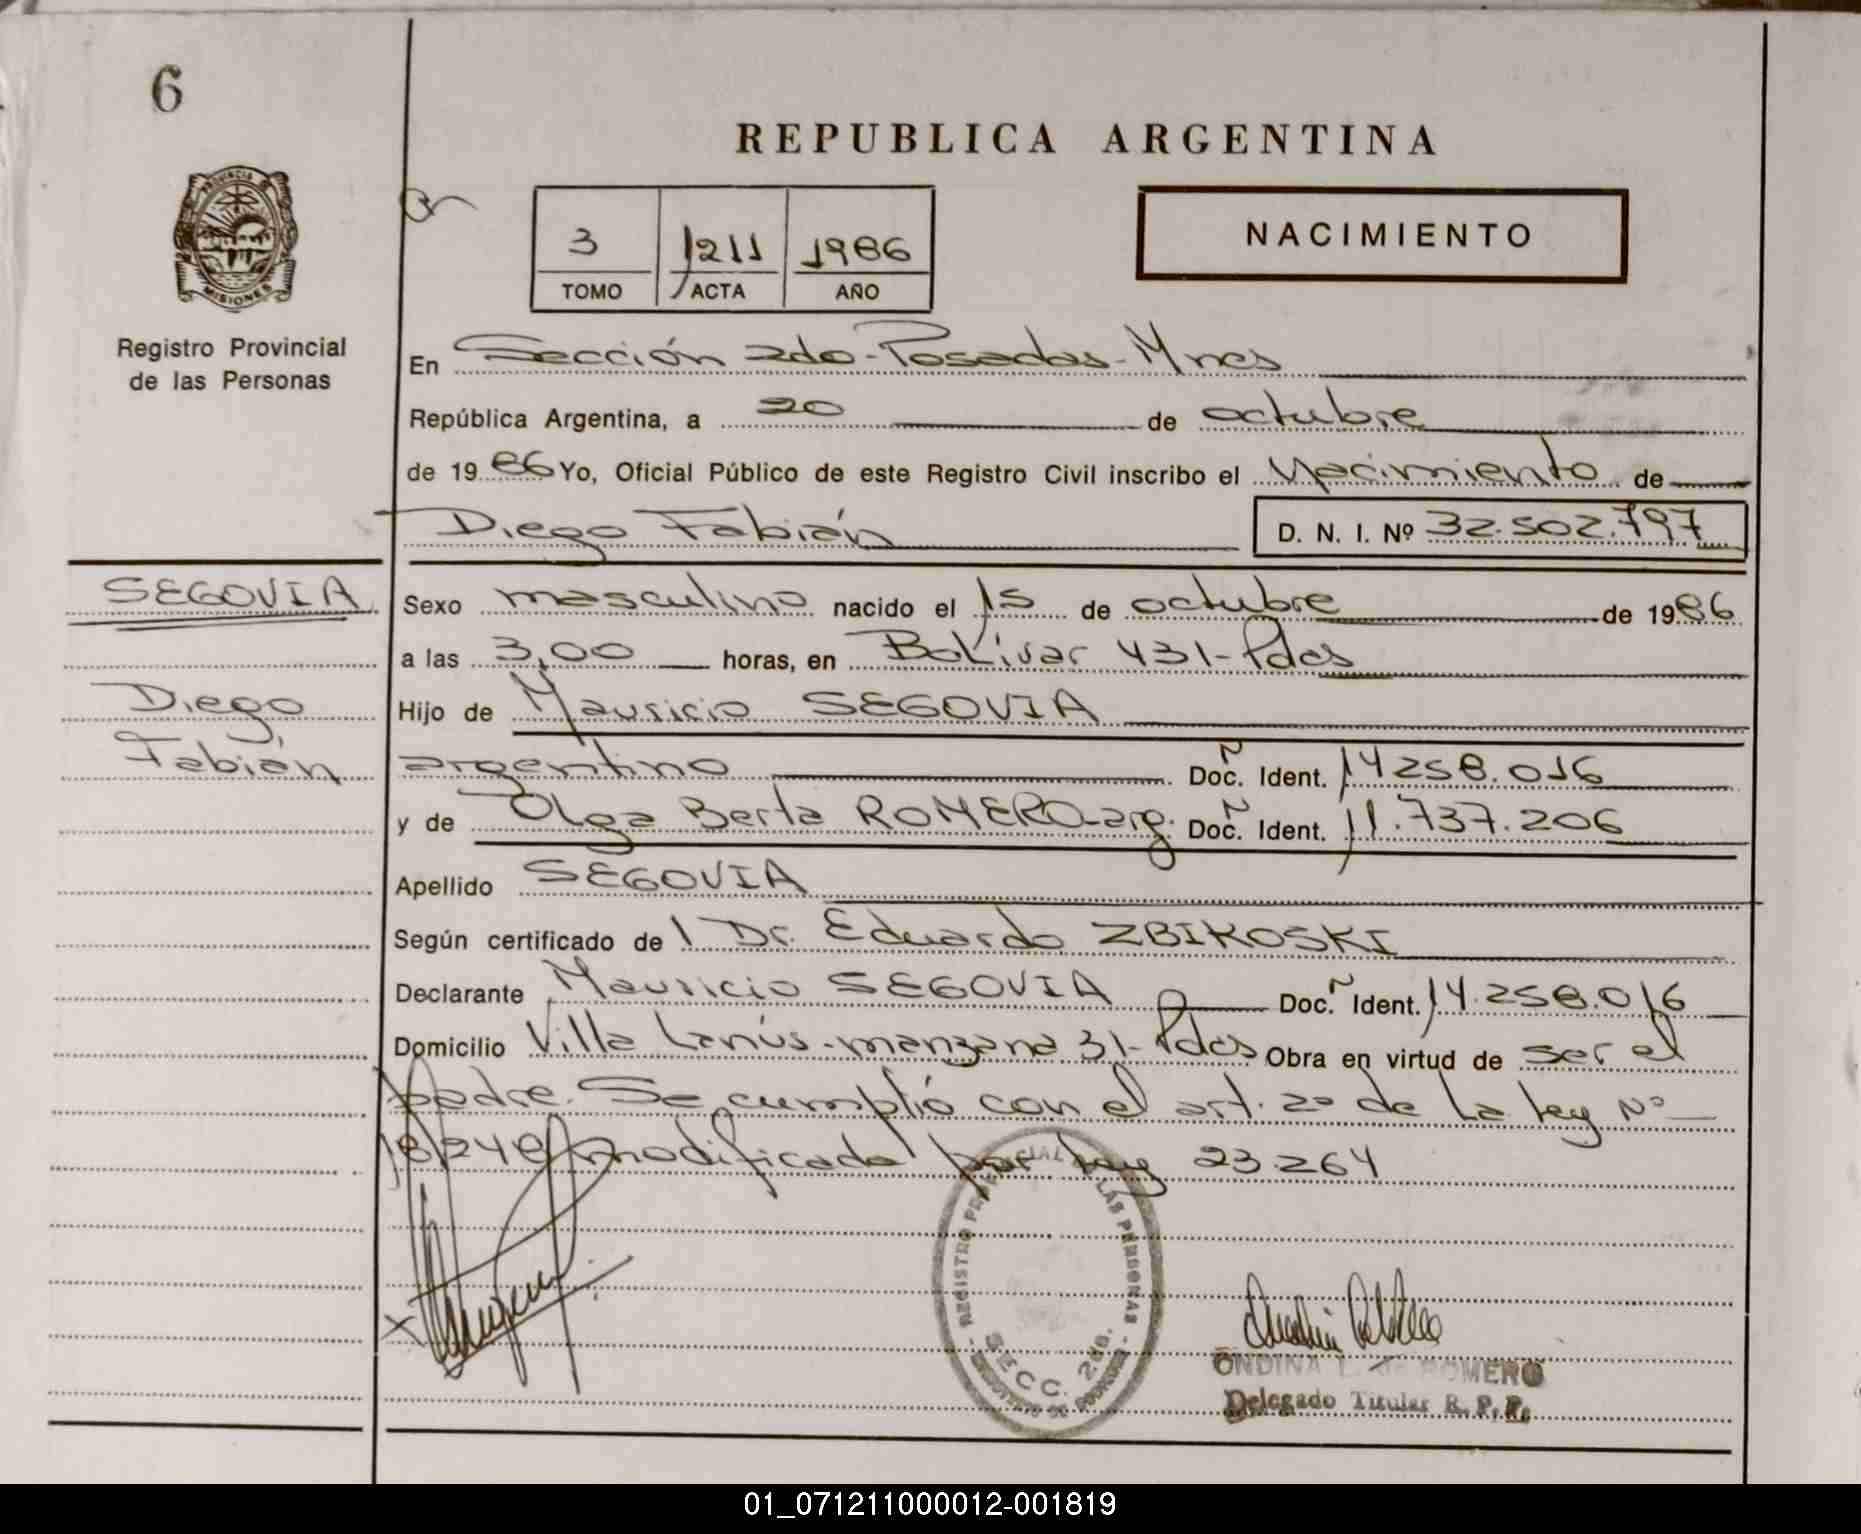 6
REPUBLICA ARGENTINA
PROVINCIA DE
MISIONES
Registro Provincial
de las Personas
3 1211 1986
TOMO ACTA AÑO
NACIMIENTO
En Sección 2do-Posadas-Mnes
República Argentina, a 20 de octubre
de 1986 Yo, Oficial Público de este Registro Civil inscribo el Nacimiento de
Diego Fabián D. N. I. Nº 32.502.797
SEGOVIA
Diego
Fabián
Sexo masculino nacido el 15 de octubre de 1986
a las 3,00 horas, en Bolívar 431-Pdas
Hijo de Mauricio SEGOVIA
argentino Doc. Ident. 14258.016
y de Olga Berta ROMERO-arg. Doc. Ident. 11.737.206
Apellido SEGOVIA
Según certificado de l Dr. Eduardo ZBIKOSKI
Declarante Mauricio SEGOVIA Doc. Ident. 14.258.016
Domicilio Villa Lanús-manzana 31-Pdas Obra en virtud de ser el
padre. Se cumplió con el art. 2º de la ley Nº
18248 modificada por ley 23.264
REGISTRO PROVINCIAL DE LAS PERSONAS
SECC. 2da.
ONDINA L. de ROMERO
Delegado Titular R. P. P.
01_071211000012-001819